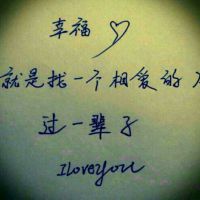 幸福
就是找一个相爱的
过一辈子
I love you